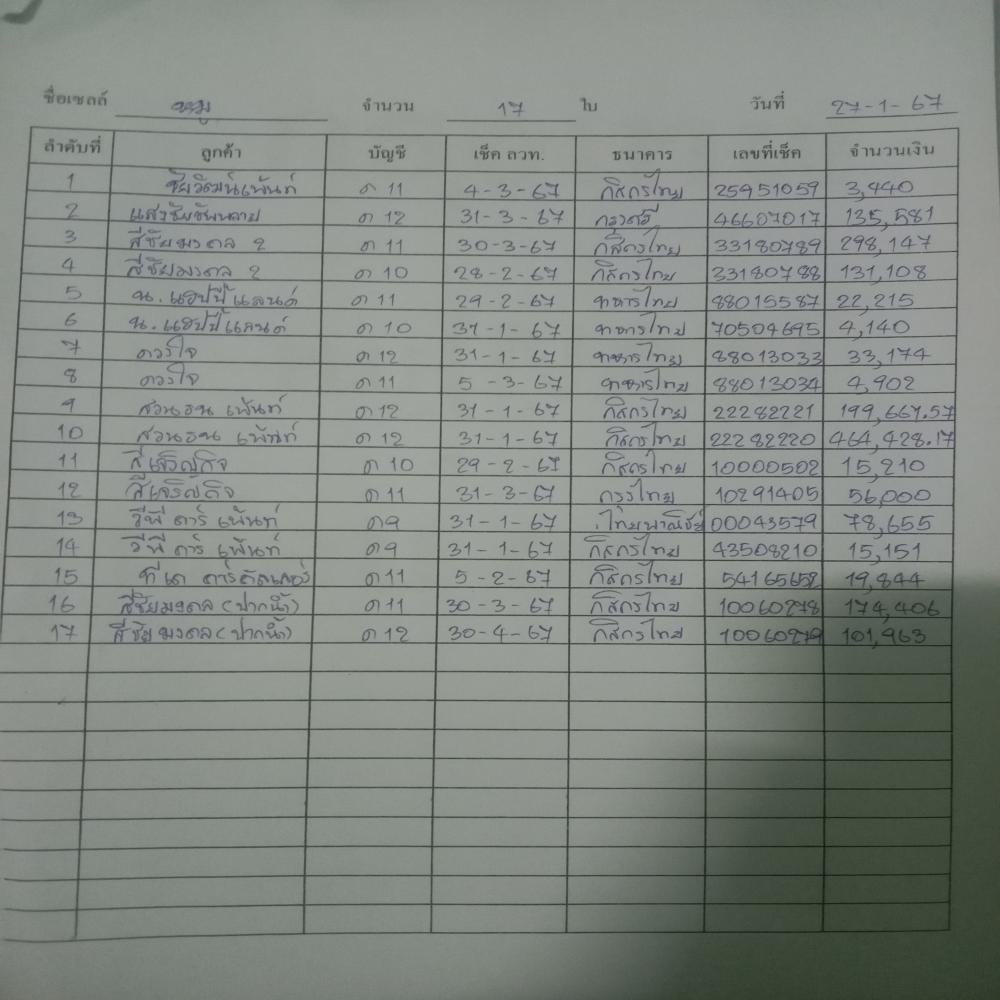 ชื่อเซลล์ หมู จำนวน 17 ใบ วันที่ 27-1-67
ลำดับที่ ลูกค้า บัญชี เช็ค ลวท. ธนาคาร เลขที่เช็ค จำนวนเงิน
1 ชัยวัฒน์เพ้นท์ ด 11 4-3-67 กสิกรไทย 25951059 3,440
2 แสงชัย ด 12 31-3-67 กรุงศรี 46607017 135,581
3 สีชัยมงคล 2 ด 11 30-3-67 กสิกรไทย 33180789 298,147
4 สีชัยมงคล 2 ด 10 28-2-67 กสิกรไทย 33180788 131,108
5 น. แฮปปี้แลนด์ ด 11 29-2-67 ทหารไทย 88015587 22,215
6 น. แฮปปี้แลนด์ ด 10 31-1-67 ทหารไทย 70504695 4,140
7 ดวงใจ ด 12 31-1-67 ทหารไทย 88013033 33,174
8 ดวงใจ ด 11 5-3-67 ทหารไทย 88013034 4,902
9 สวนธน เพ้นท์ ด 12 31-1-67 กสิกรไทย 22282221 199,667.57
10 สวนธน เพ้นท์ ด 12 31-1-67 กสิกรไทย 22282220 464,428.17
11 สีเจริญกิจ ด 10 29-2-67 กสิกรไทย 10000502 15,210
12 สีเจริญกิจ ด 11 31-3-67 กรุงไทย 10291405 56,000
13 วีพี คาร์ เพ้นท์ ด 9 31-1-67 ไทยพาณิชย์ 00043579 78,655
14 วีพี คาร์ เพ้นท์ ด 9 31-1-67 กสิกรไทย 43508210 15,151
15 ที เค คาร์คัลเลอร์ ด 11 5-2-67 กสิกรไทย 54165652 19,844
16 สีชัยมงคล (ปากน้ำ) ด 11 30-3-67 กสิกรไทย 10060278 174,406
17 สีชัยมงคล (ปากน้ำ) ด 12 30-4-67 กสิกรไทย 10060279 101,963